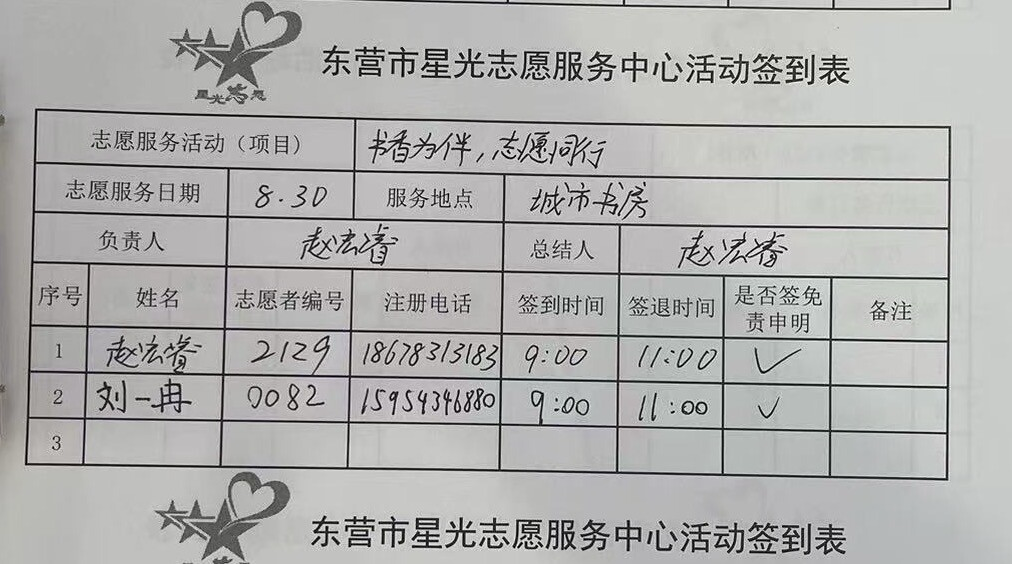 星光志愿
东营市星光志愿服务中心活动签到表
志愿服务活动（项目） 书香为伴，志愿同行
志愿服务日期 8.30 服务地点 城市书房
负责人 赵宏睿 总结人 赵宏睿
序号 姓名 志愿者编号 注册电话 签到时间 签退时间 是否签免责申明 备注
1 赵宏睿 2129 18678313183 9:00 11:00 ✓
2 刘一冉 0082 15954346880 9:00 11:00 ✓
3
东营市星光志愿服务中心活动签到表